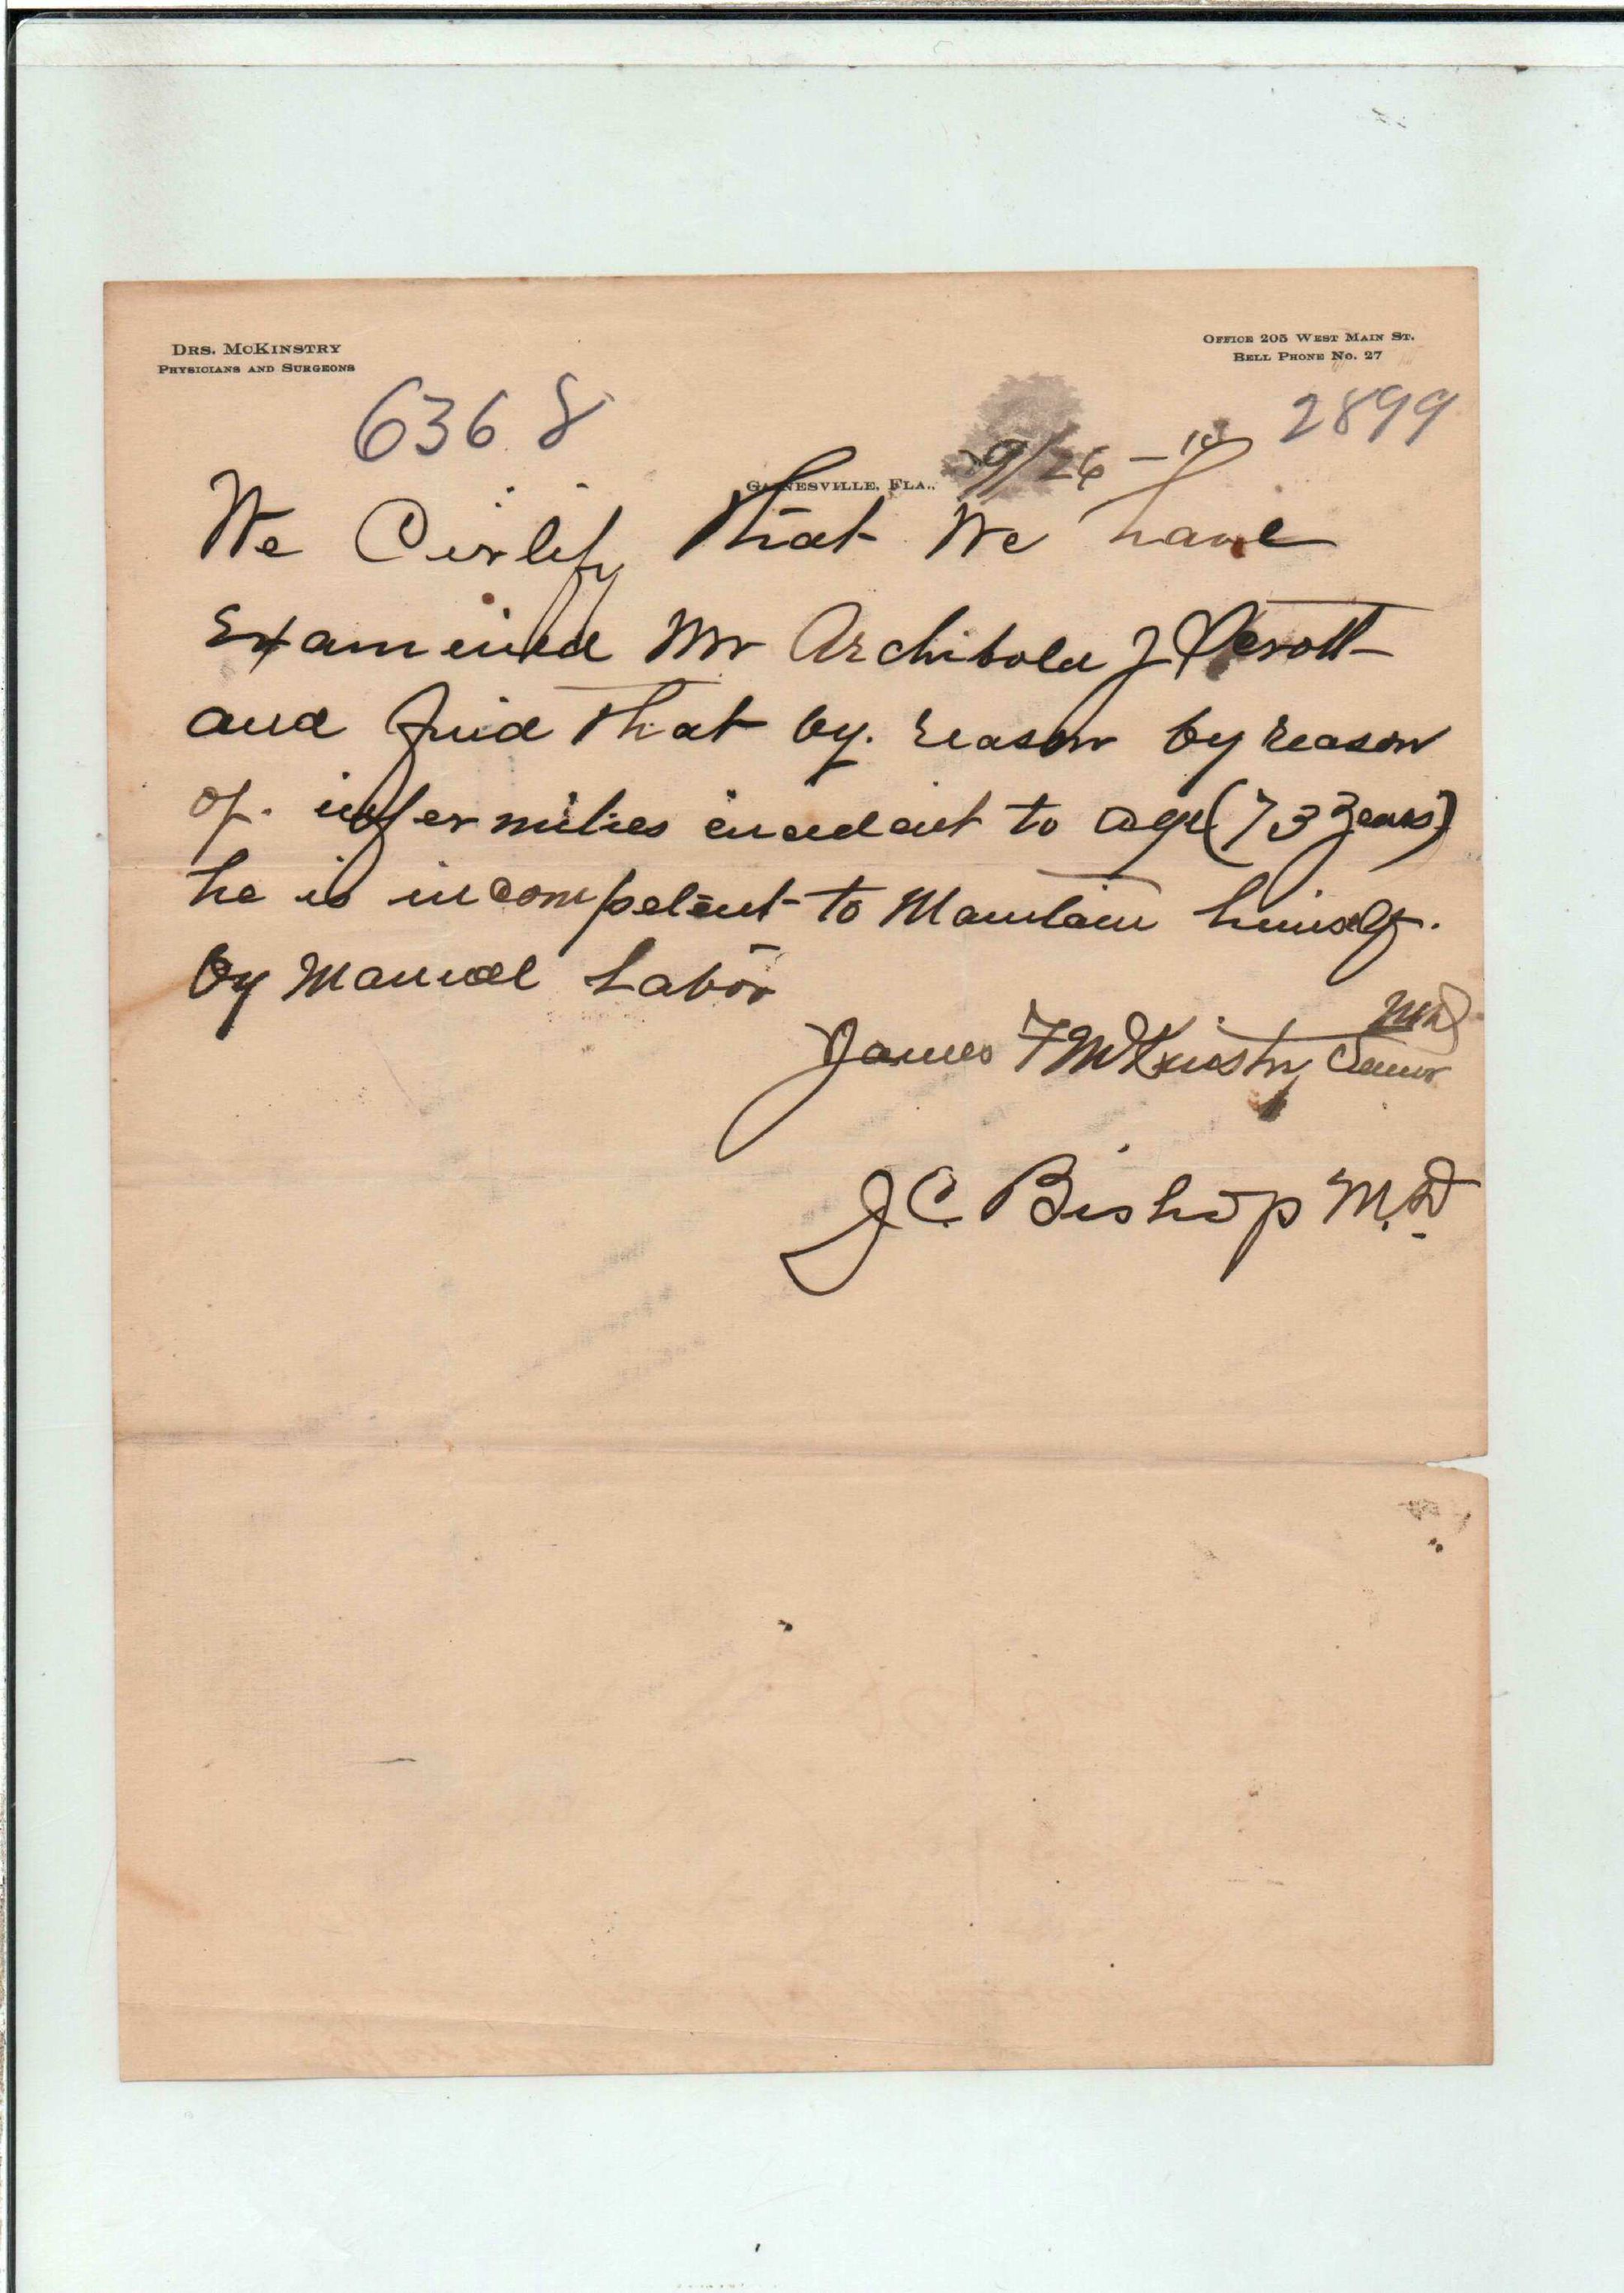 DRS. MCKINSTRY
PHYSICIANS AND SURGEONS
OFFICE 205 WEST MAIN ST.
BELL PHONE NO. 27
6368
2899
GAINESVILLE, FLA., 9/26 - 10
We Certify that We have
Examined Mr Archibald J
and find that by. reason by reason
of. infermities incident to age (73 years)
he is incompetent to Maintain himself.
by Manual Labor
James F McKinstry Senior MD
J. C. Bishop M.D.